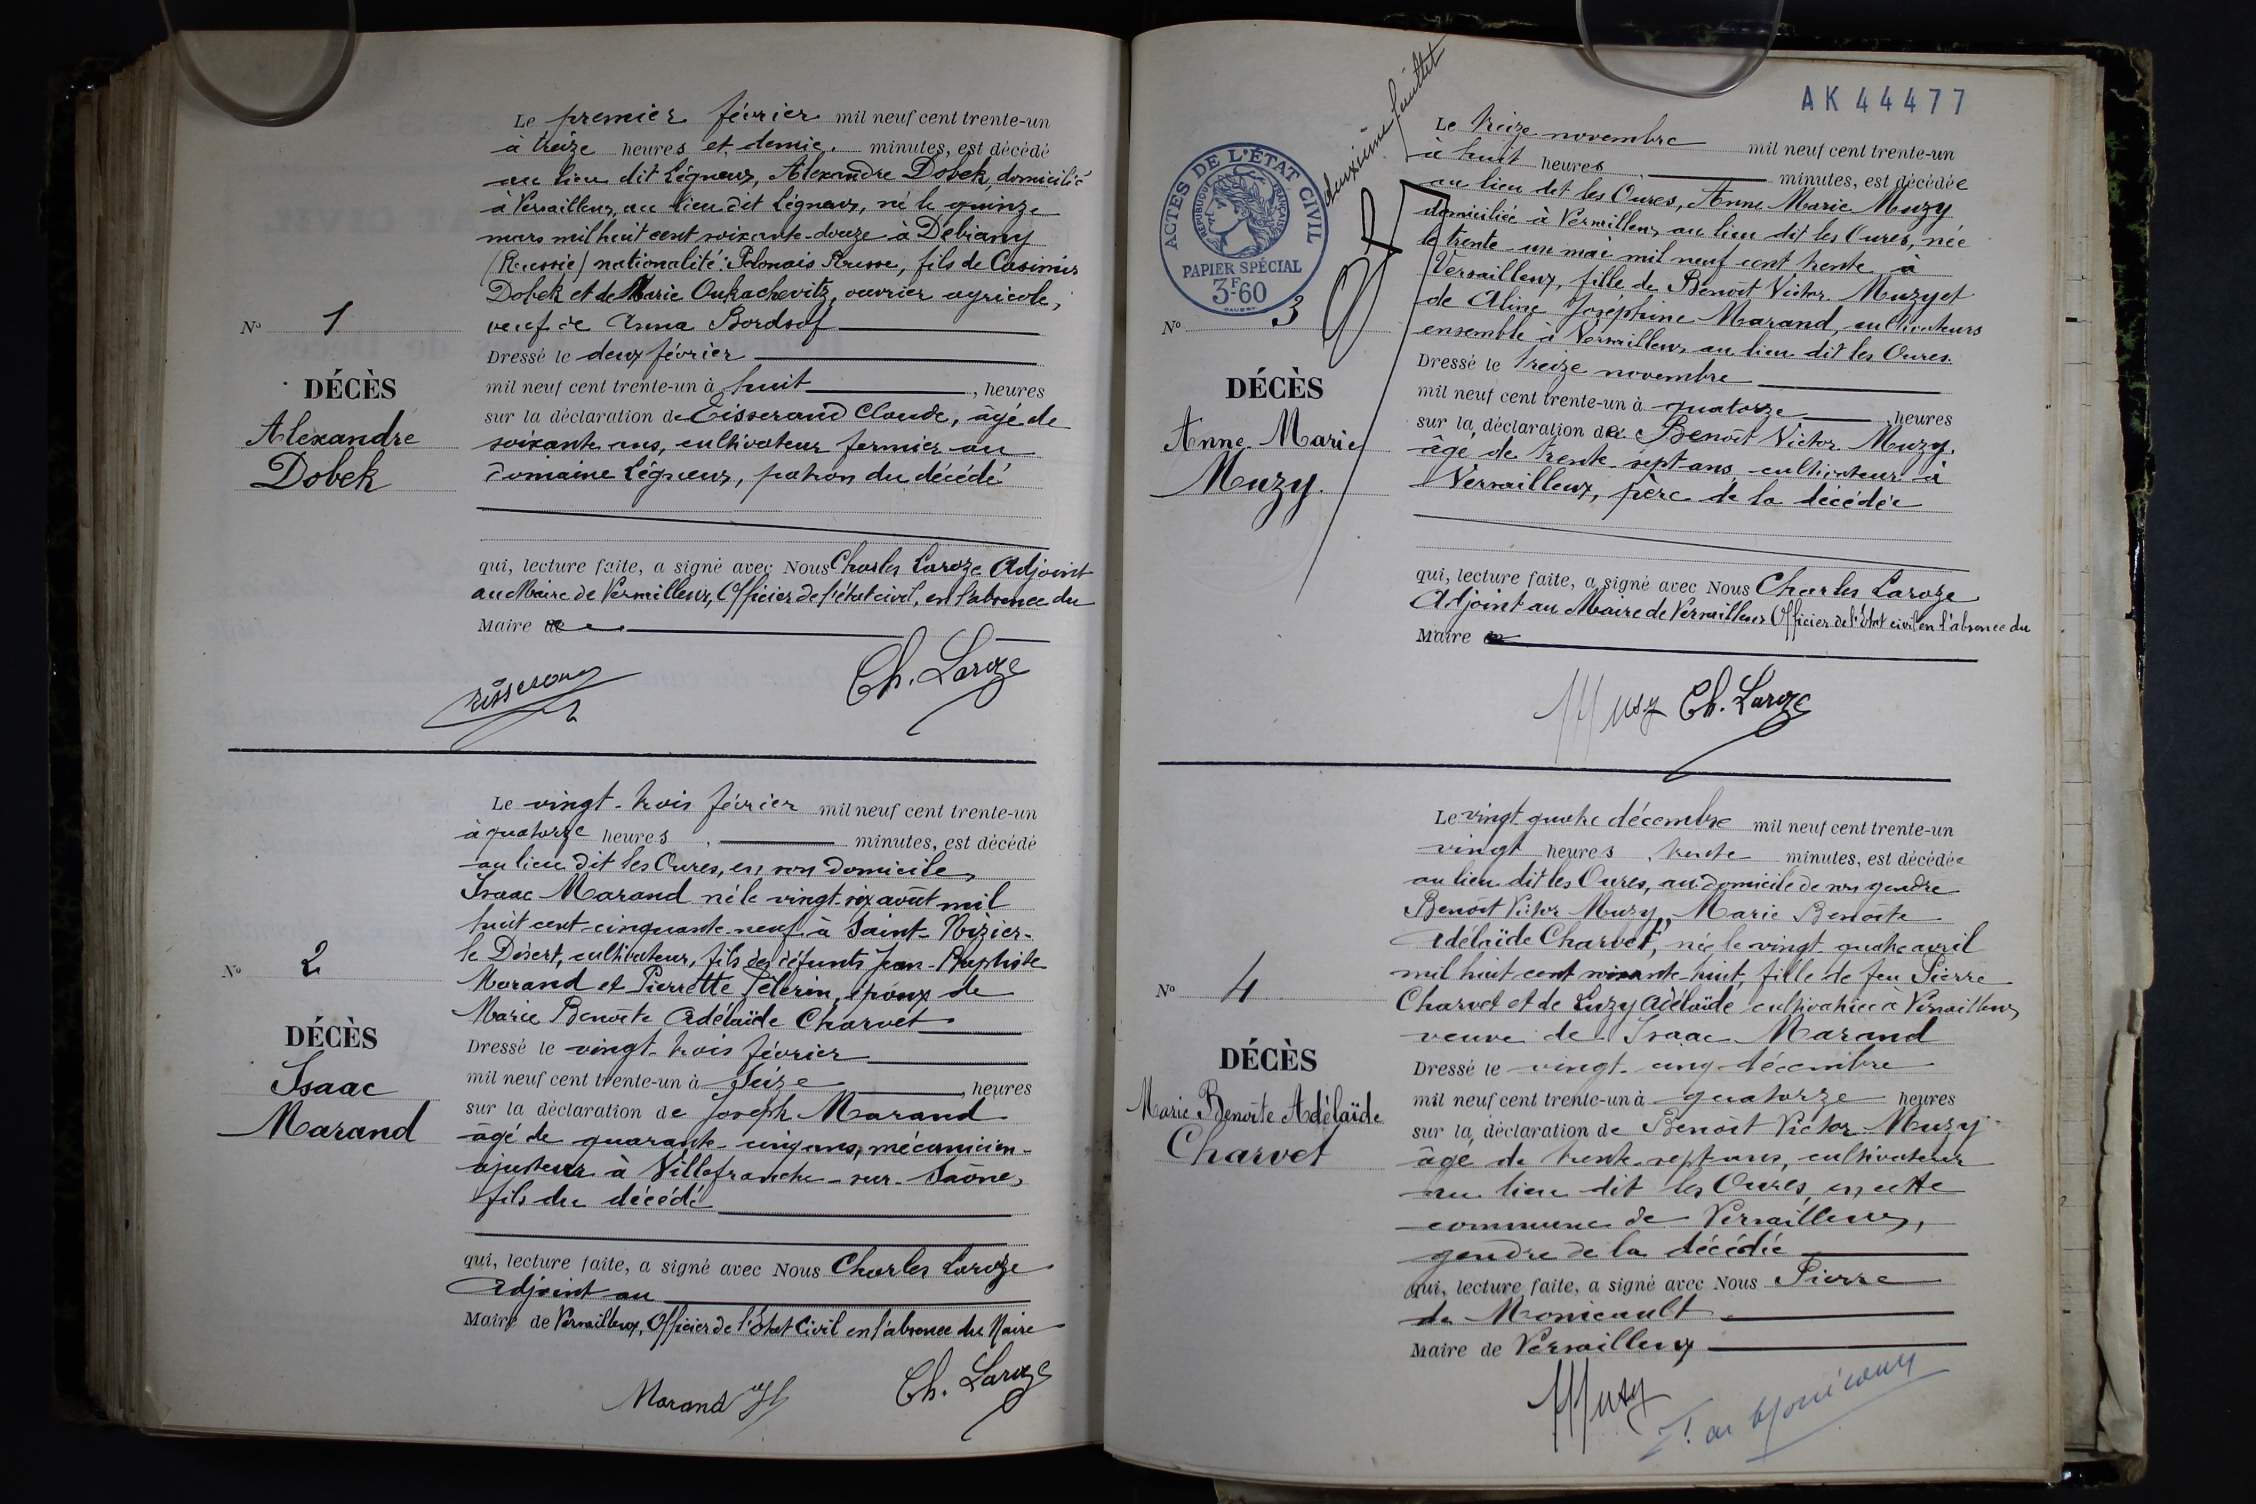 Le premier février mil neuf cent trente-un
à treize heures et demie. minutes, est décédé
au lieu dit Légneux, Alexandre Dobek, domicilié
à Versailleux, au lieu dit Légneux, né le quinze
mars mil huit cent soixante-douze à Debiany
(Russie) nationalité: Polonais Russe, fils de Casimir
Dobek et de Marie Oukachevitz, ouvrier agricole,
veuf de Anna Bordsof
Dressé le deux février
mil neuf cent trente-un à huit, heures
sur la déclaration de Tisserand Claude, âgé de
soixante ans, cultivateur fermier au
domaine Légneux, patron du décédé
qui, lecture faite, a signé avec Nous Charles Laroze Adjoint
au Maire de Versailleux, Officier de l'état civil, en l'absence du
Maire
Tisserand Ch. Laroze
N° 1
DÉCÈS
Alexandre
Dobek
Le vingt-trois février mil neuf cent trente-un
à quatorze heures minutes, est décédé
au lieu dit les Oures, en son domicile,
Isaac Marand né le vingt-six août mil
huit cent cinquante-neuf à Saint-Nizier-
le Désert, cultivateur, fils des défunts Jean-Baptiste
Marand et Pierrette Pélerin, époux de
Marie Benoîte Adélaïde Charvet
Dressé le vingt-trois février
mil neuf cent trente-un à seize, heures
sur la déclaration de Joseph Marand
âgé de quarante-cinq ans, mécanicien-
ajusteur à Villefranche-sur-Saône,
fils du décédé
qui, lecture faite, a signé avec Nous Charles Laroze
Adjoint au
Maire de Versailleux, Officier de l'Etat Civil en l'absence du Maire
Marand Ch. Laroze
N° 2
DÉCÈS
Isaac
Marand
AK 44477
deuxième feuillet
ACTES DE L'ÉTAT CIVIL
RÉPUBLIQUE FRANÇAISE
PAPIER SPÉCIAL
3F.60
Le treize novembre mil neuf cent trente-un
à huit heures minutes, est décédée
au lieu dit les Oures, Anne Marie Muzy
domiciliée à Versailleux au lieu dit les Oures, née
le trente-un mai mil neuf cent trente à
Versailleux, fille de Benoît Victor Muzy et
de Aline Joséphine Marand, cultivateurs
ensemble à Versailleux au lieu dit les Oures.
Dressé le treize novembre
mil neuf cent trente-un à quatorze heures
sur la déclaration de Benoît Victor Muzy.
âgé de trente-sept ans cultivateur à
Versailleux, père de la décédée
qui, lecture faite, a signé avec Nous Charles Laroze
Adjoint au Maire de Versailleux Officier de l'Etat civil en l'absence du
Maire
Musy Ch. Laroze
N° 3
DÉCÈS
Anne Marie
Muzy.
Le vingt-quatre décembre mil neuf cent trente-un
vingt heures trente minutes, est décédée
au lieu dit les Oures, au domicile de son gendre
Benoît Victor Muzy, Marie Benoîte
Adélaïde Charvet, née le vingt-quatre avril
mil huit cent soixante-huit, fille de feu Pierre
Charvet et de Luzy Adélaïde cultivatrice à Versailleux,
veuve de Isaac Marand
Dressé le vingt-cinq décembre
mil neuf cent trente-un à quatorze heures
sur la déclaration de Benoît Victor Muzy
âgé de trente-sept ans, cultivateur
au lieu dit les Oures, en cette
commune de Versailleux,
gendre de la décédée
qui, lecture faite, a signé avec Nous Pierre
de Monicault
Maire de Versailleux
Musy P. de Monicault
N° 4
DÉCÈS
Marie Benoîte Adélaïde
Charvet